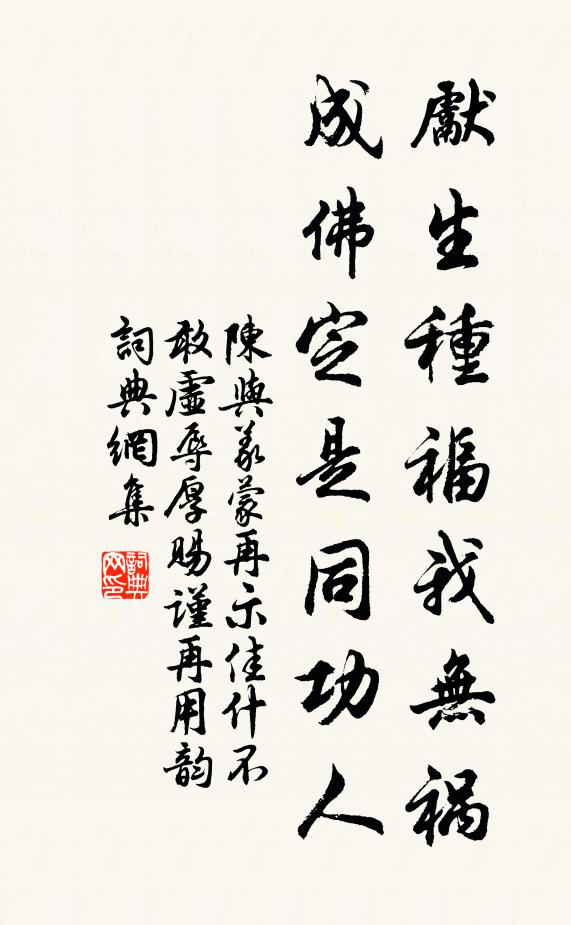 獻生種福我無禍
成佛定是同功人
陳與義蒙再示佳什不
敢虛辱厚賜謹再用韵
詞典網集
詞典
网印